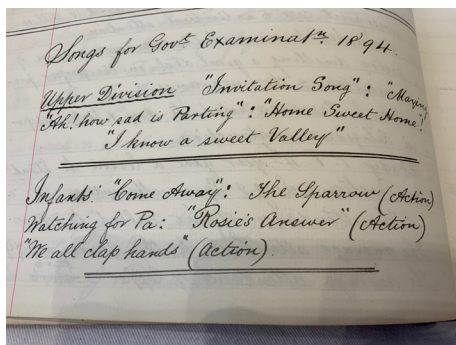 Songs for Govt Examinatn 1894.
Upper Division "Invitation Song": "Maying
"Ah! how sad is Parting": "Home Sweet Home"!
"I know a sweet Valley"
Infants: "Come Away": The Sparrow (Action)
Watching for Pa: "Rosie's Answer" (Action)
"We all clap hands" (action).